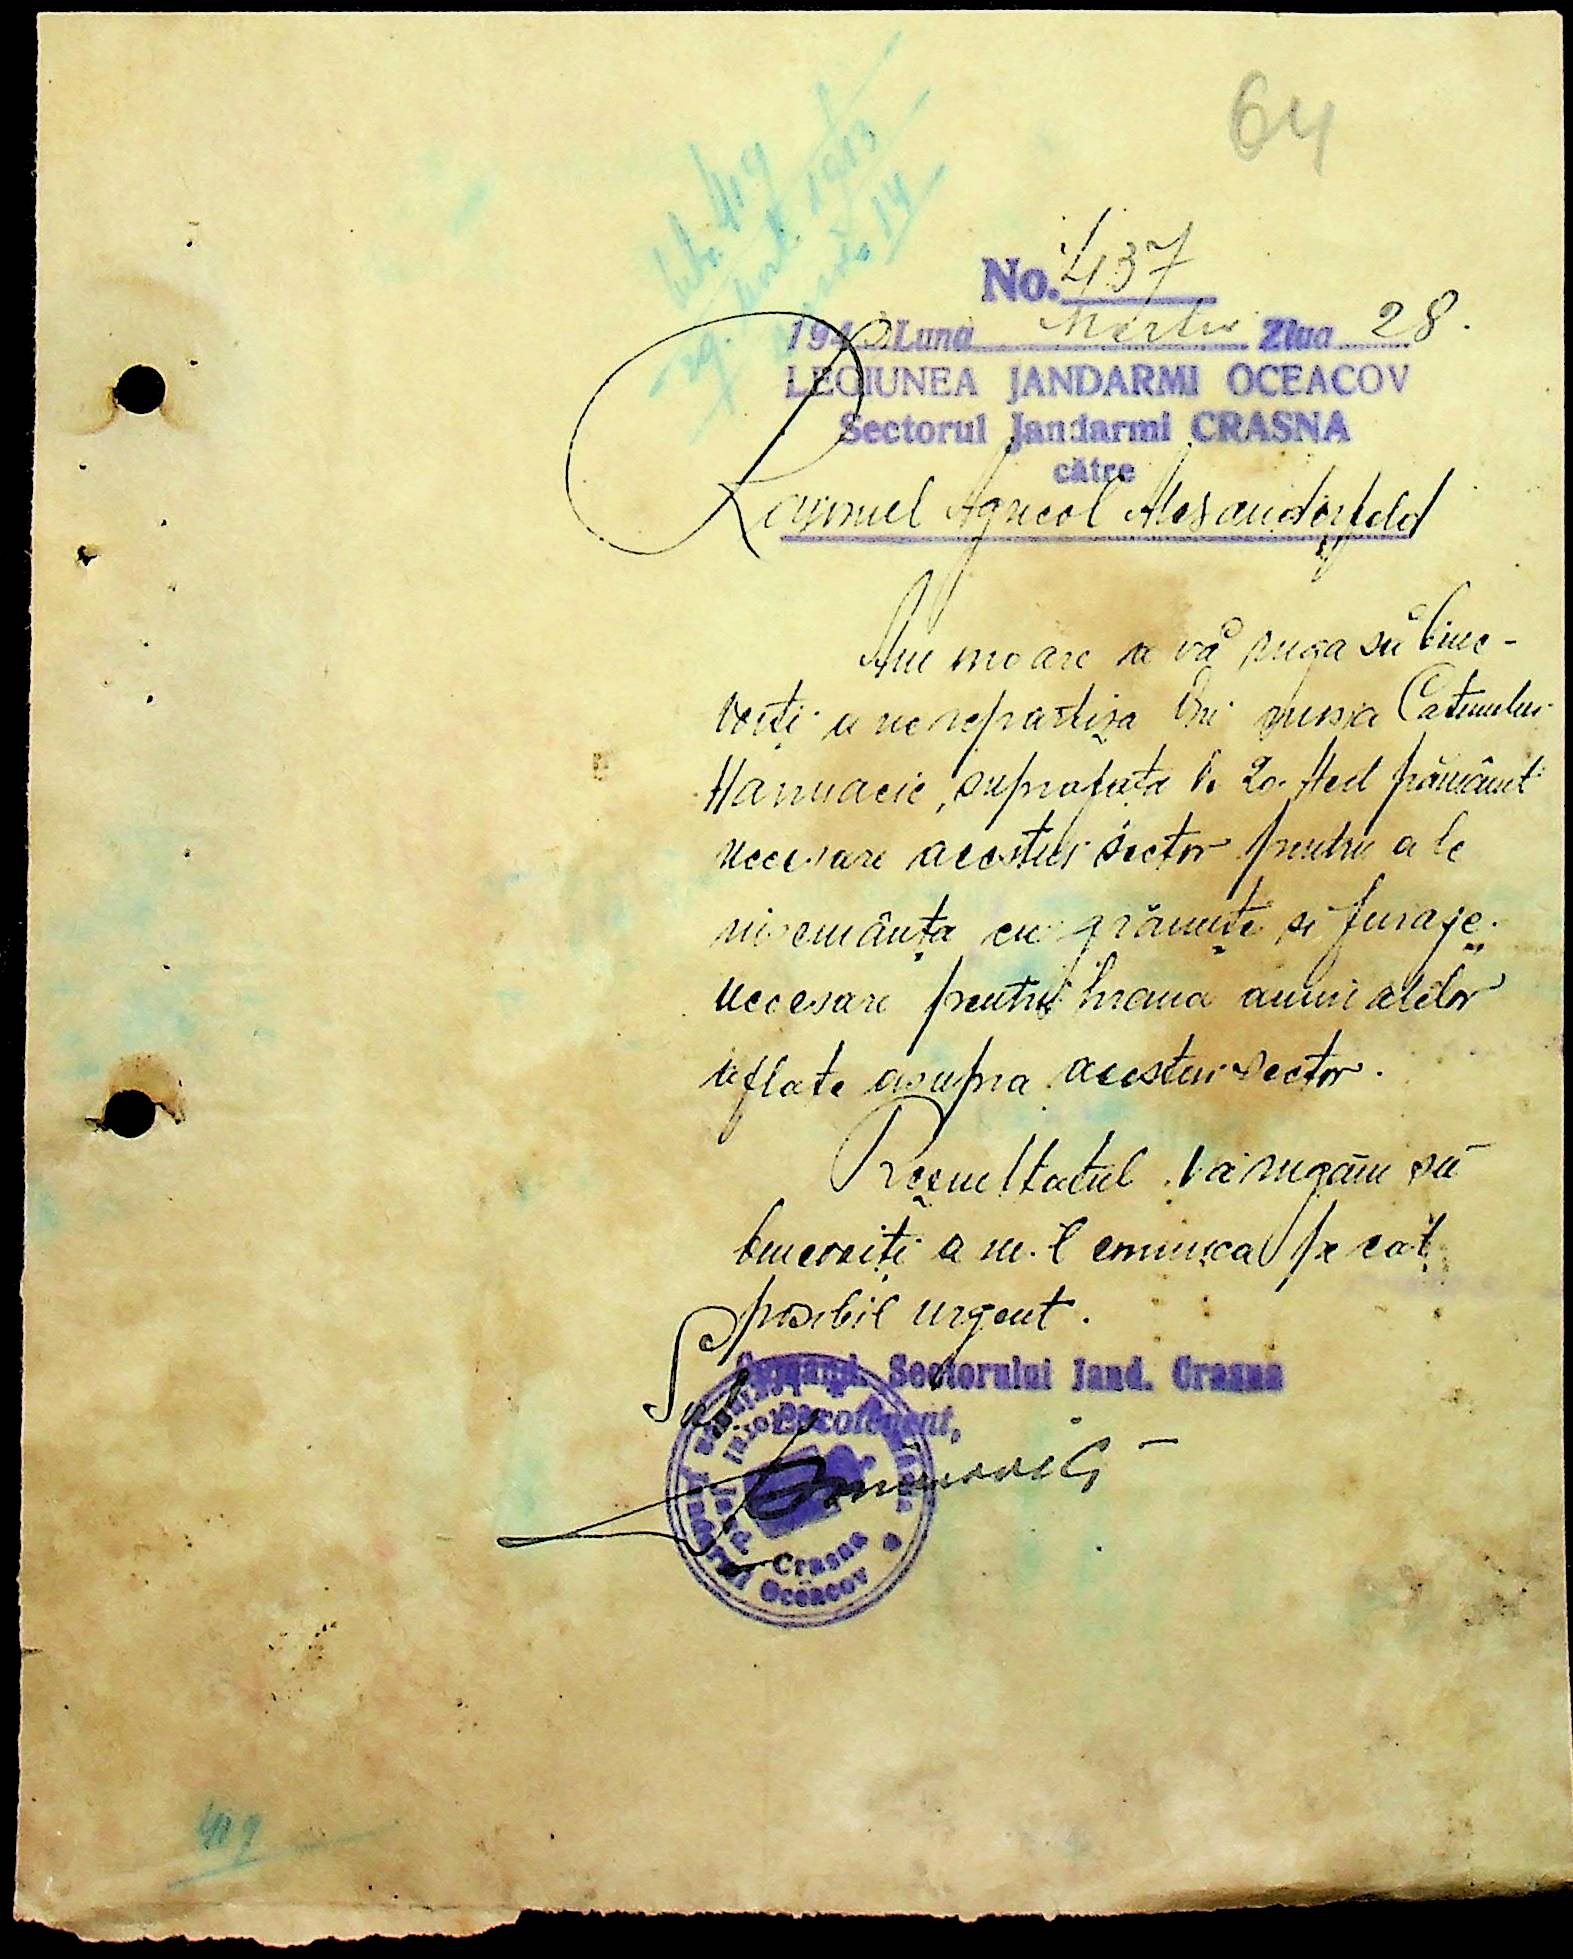 64
419
1943
No. 437
1943 Luna Martie Ziua 28.
LEGIUNEA JANDARMI OCEACOV
Sectorul Jandarmi CRASNA
către
Raionul Agricol Alexanderfeld
Am onoare a vă ruga să bine-
voiți a ne repartiza din raza Catunului
suprafața de 20. Hect pământ
necesare acestui sector pentru a le
însemânța cu grăunțe și furaje
necesare pentru hrana animalelor
aflate asupra acestui sector.
Rezultatul vă rugăm să
binevoiți a ni-l comunica pe cât
posibil urgent.
Comand. Sectorului Jand. Crasna
Locotenent,
Crasna
Oceacov
419